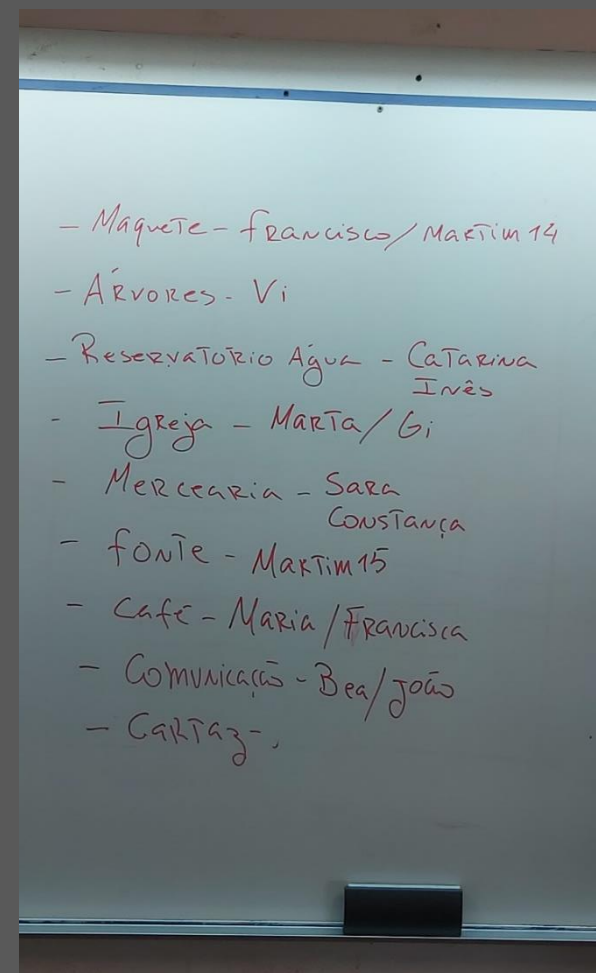 - Maquete - Francisco / Martim 14
- Árvores - Vi
- Reservatório Água - Catarina
Inês
- Igreja - Marta / Gi
- Mercearia - Sara
Constança
- fonte - Martim 15
- Café - Maria / Francisca
- Comunicação - Bea / João
- Cartaz - .